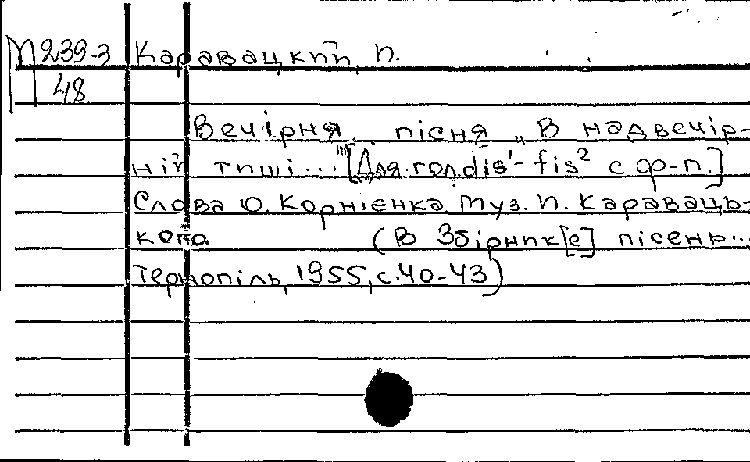 П239-3 Каравацкий, П.
48
Вечірня пісня „В надвечір-
ній тиші..."[Для гол. dis¹-fis² с ф-п.]
Слова О. Корнієнка. Муз. П. Караваць-
кого. (В Збірник[е] пісень...
Тернопіль, 1955, с.40-43)